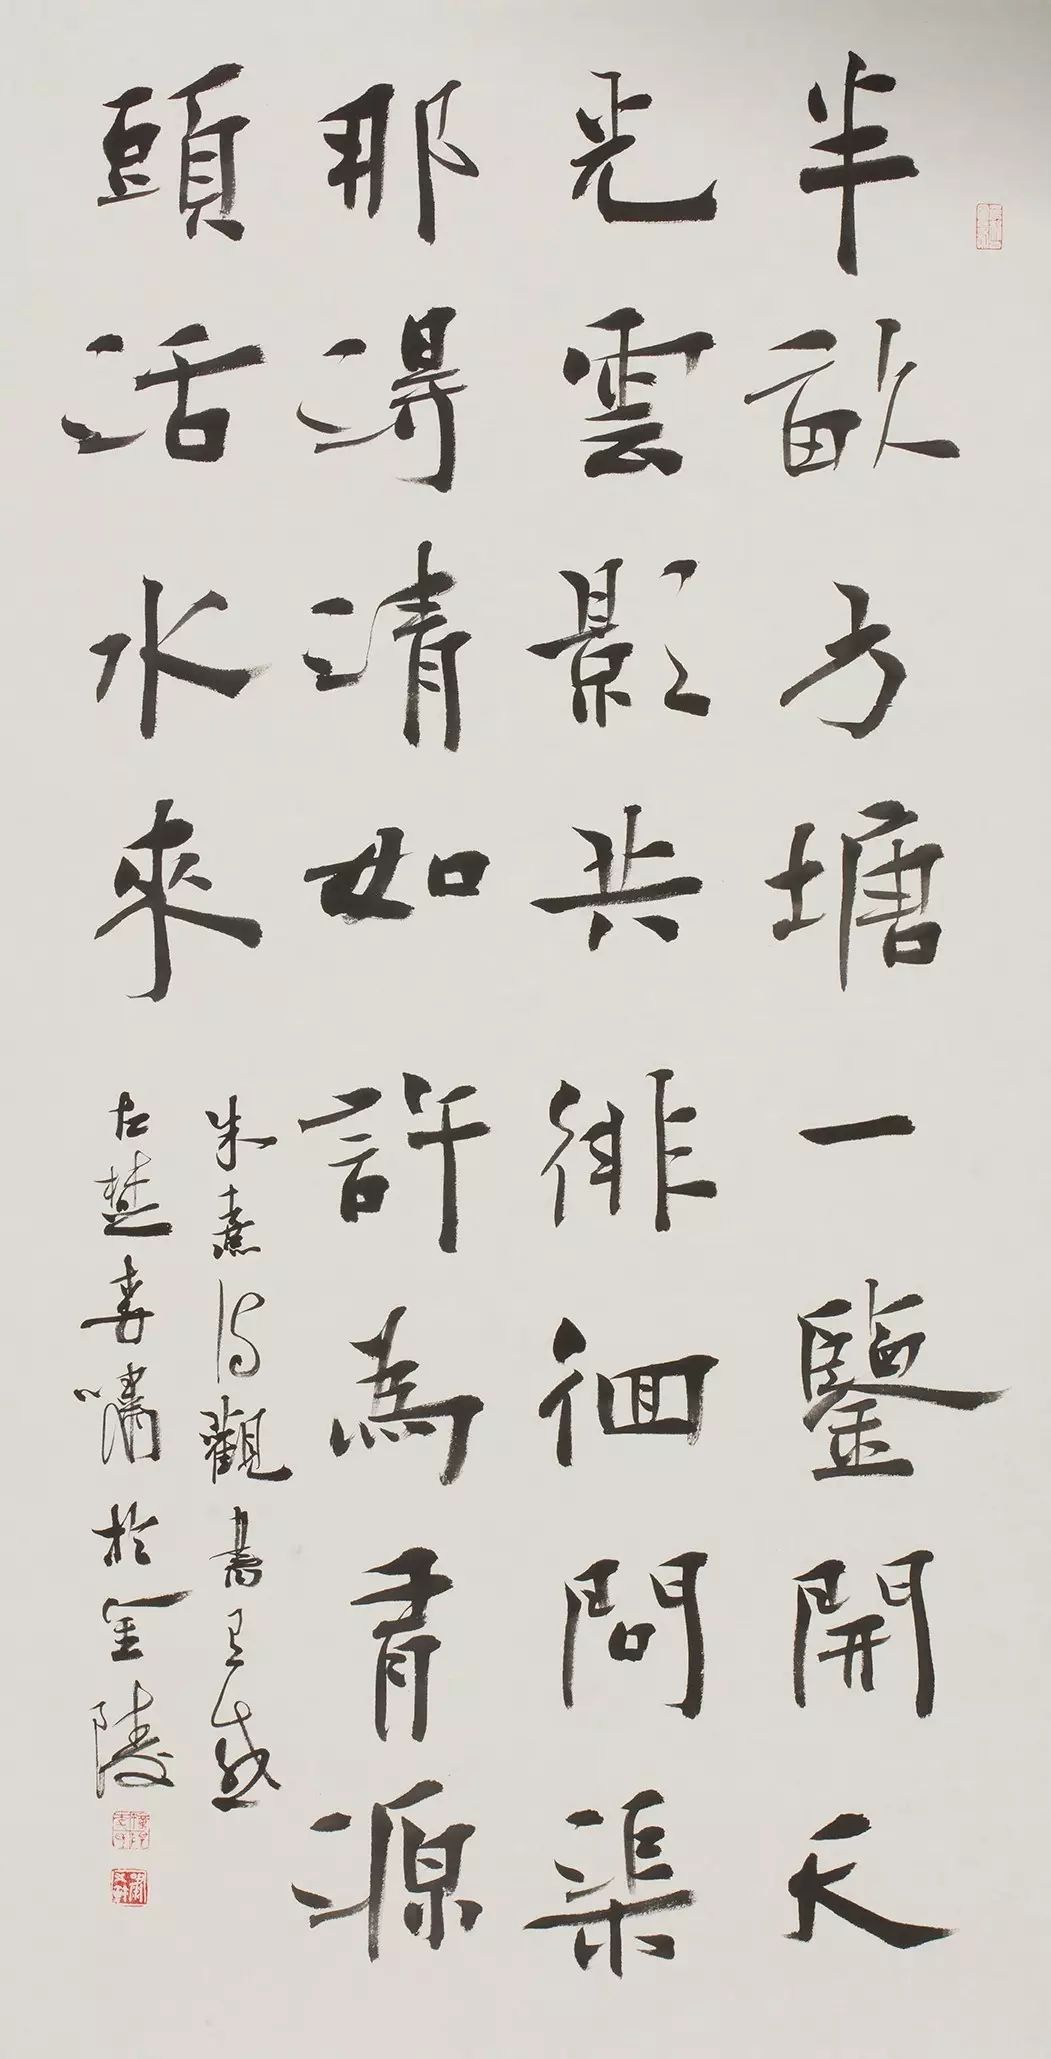 半畝方塘一鑒開天
光雲影共徘徊問渠
那得清如許為有源
頭活水來
朱熹詩觀書有感
古楚李嘯於金陵